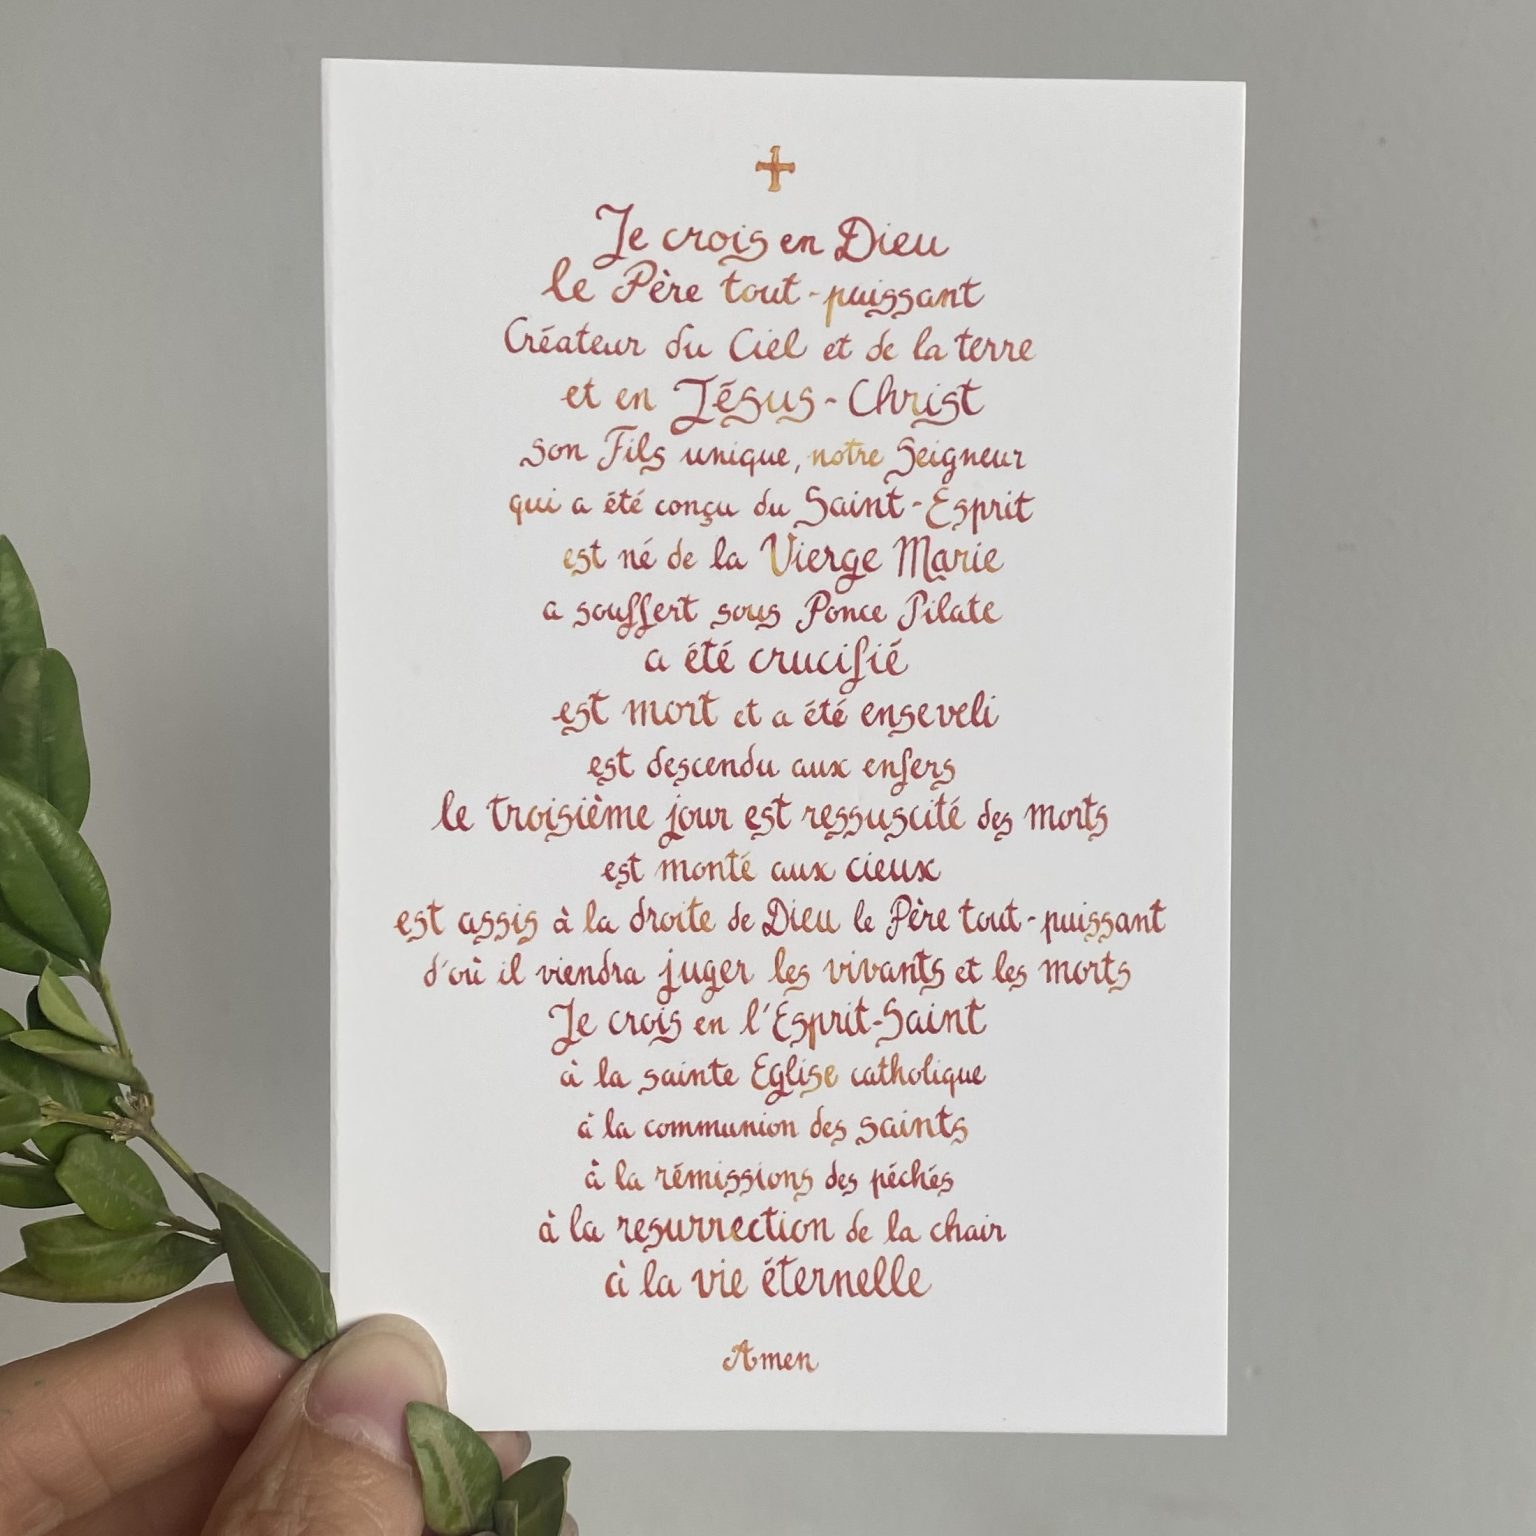 Je crois en Dieu
le Père tout-puissant
Créateur du Ciel et de la terre
et en Jésus-Christ
son Fils unique, notre Seigneur
qui a été conçu du Saint-Esprit
est né de la Vierge Marie
a souffert sous Ponce Pilate
a été crucifié
est mort et a été enseveli
est descendu aux enfers
le troisième jour est ressuscité des morts
est monté aux cieux
est assis à la droite de Dieu le Père tout-puissant
d'où il viendra juger les vivants et les morts
Je crois en l'Esprit-Saint
à la sainte Eglise catholique
à la communion des saints
à la rémissions des péchés
à la resurrection de la chair
à la vie éternelle
Amen